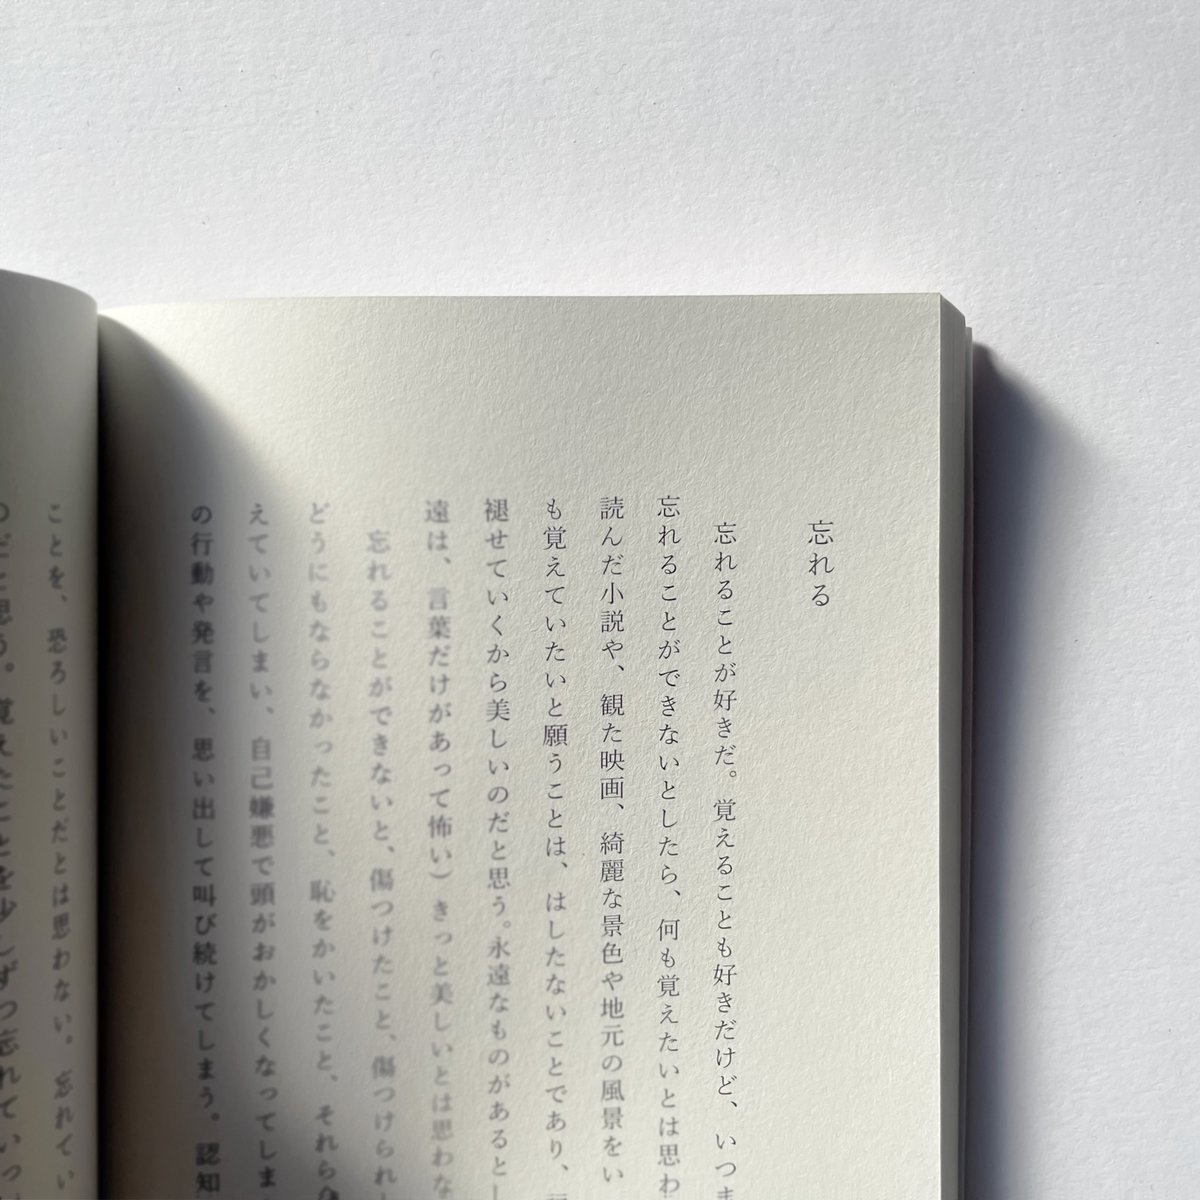 忘れる
忘れることが好きだ。覚えることも好きだけど、いつま
忘れることができないとしたら、何も覚えたいとは思わ
読んだ小説や、観た映画、綺麗な景色や地元の風景をい
も覚えていたいと願うことは、はしたないことであり、
褪せていくから美しいのだと思う。永遠なものがあるとし
遠は、言葉だけがあって怖い）きっと美しいとは思わな
忘れることができないと、傷つけたこと、傷つけられ
どうにもならなかったこと、恥をかいたこと、それら
えていてしまい、自己嫌悪で頭がおかしくなってしま
の行動や発言を、思い出して叫び続けてしまう。認知
ことを、恐ろしいことだとは思わない。忘れてい
のだと思う。覚えたことを少しずつ忘れていっ